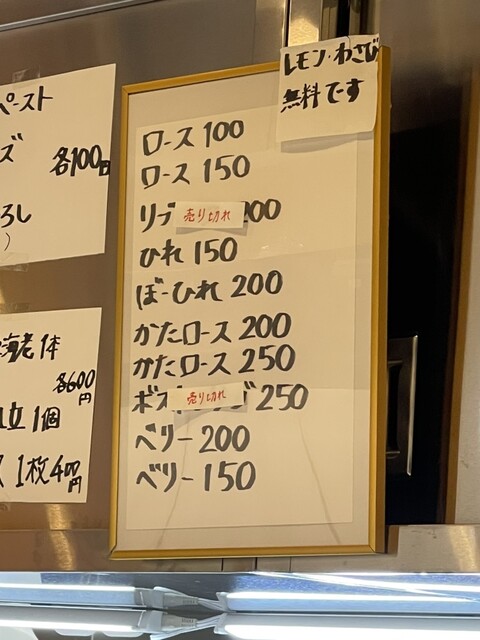 レモン・わさび
無料です
ロース 100
ロース 150
リブ 売り切れ 200
ひれ 150
ぼーひれ 200
かたロース 200
かたロース 250
ボス 売り切れ 250
ベリー 200
ベリー 150
ペースト
ズ 各100円
ろし
)
海老1体
各600円
1個
1枚400円